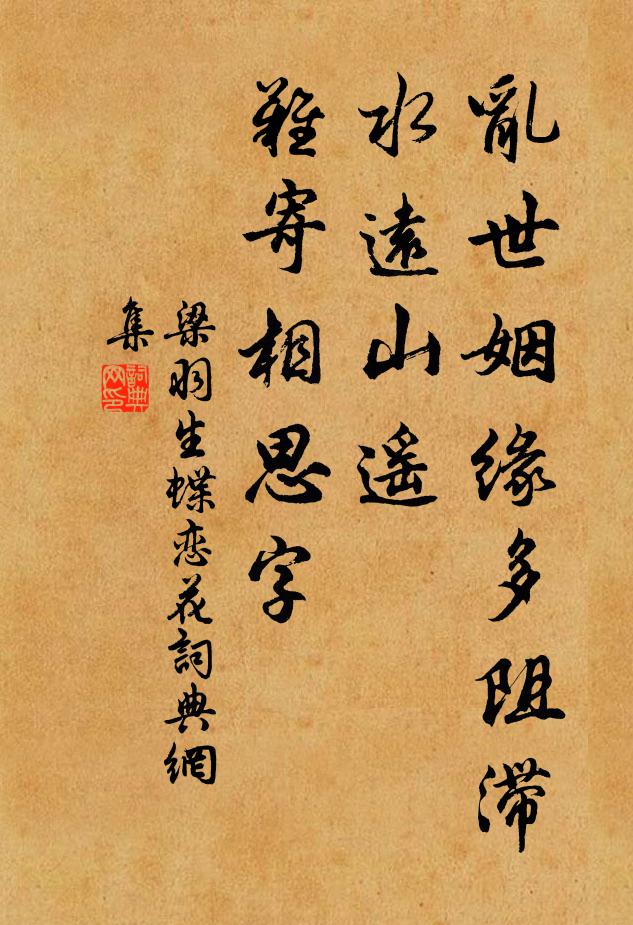 亂世姻緣多阻滯
水遠山遥
難寄相思字
梁羽生蝶恋花詞典網
集
詞典
网印